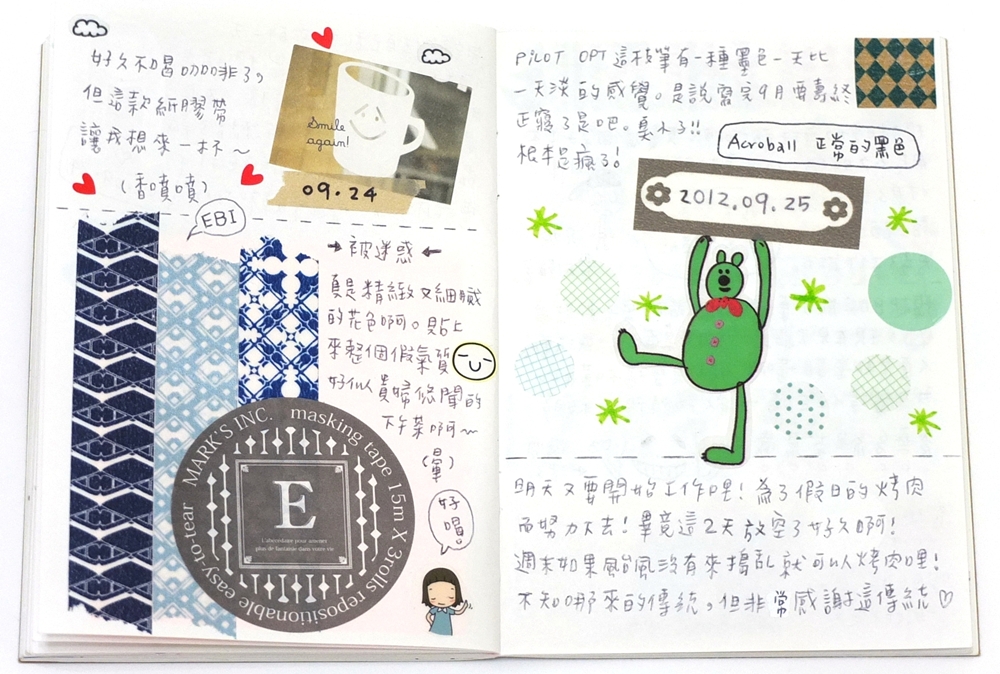 好久不喝咖啡了，
但這款紙膠帶
讓我想來一杯～
(香噴噴)
Smile
again!
09.24
EBI
→被迷惑←
真是精緻又細膩
的花色啊。貼上
來整個假氣質
好似貴婦悠閒的
下午茶啊～
(暈)
好喝。
MARK'S INC. masking tape 15m X 3rolls repositionable easy-to-tear
E
L'abordaire pour amener
plus de fantaisie dans votre vie
PILOT OPT 這枝筆有一種墨色一天比
一天淡的感覺。是說寫完9月要壽終
正寢了是吧。臭小子!!
根本是瘋了!
Acroball 正常的黑色
2012.09.25
明天又要開始工作哩! 為了假日的烤肉
而努力下去! 畢竟這2天放空了好久啊!
週末如果颱風沒有來搗亂就可以烤肉哩!
不知哪來的傳統，但非常感謝這傳統♡